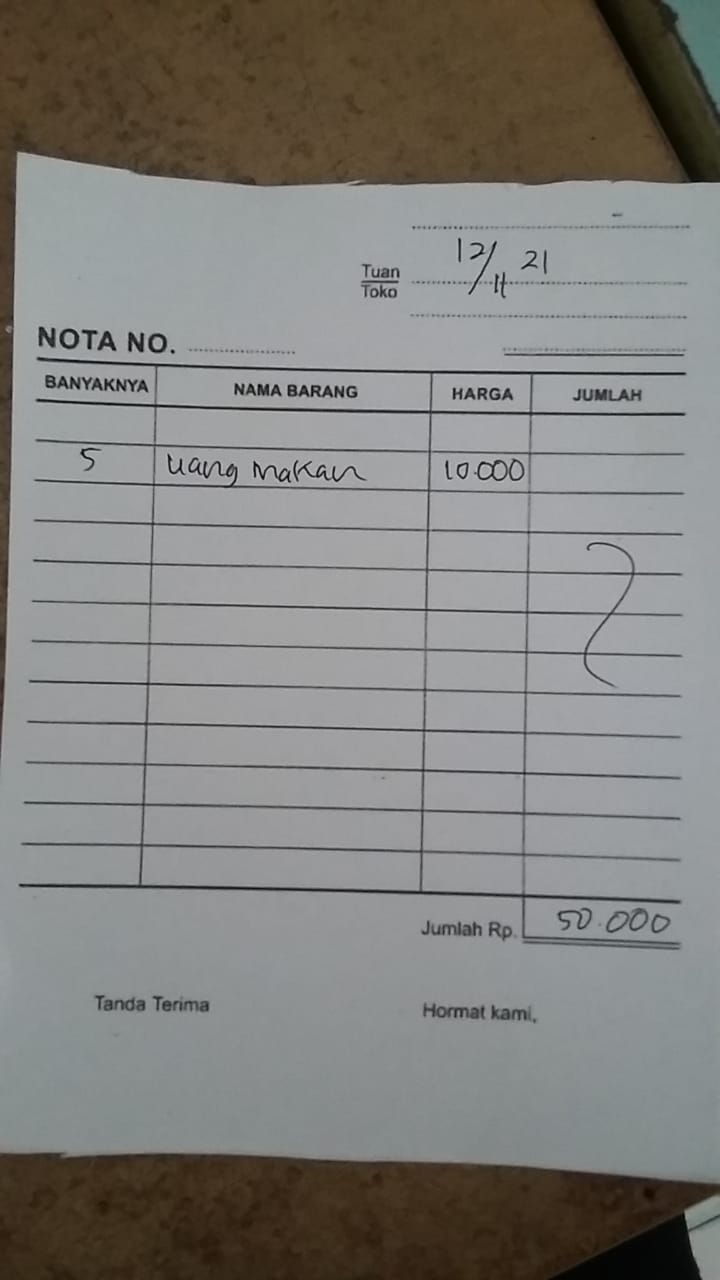 12/11 21
Tuan
Toko
NOTA NO.
BANYAKNYA NAMA BARANG HARGA JUMLAH
5 uang makan 10.000
Jumlah Rp. 50.000
Tanda Terima Hormat kami,